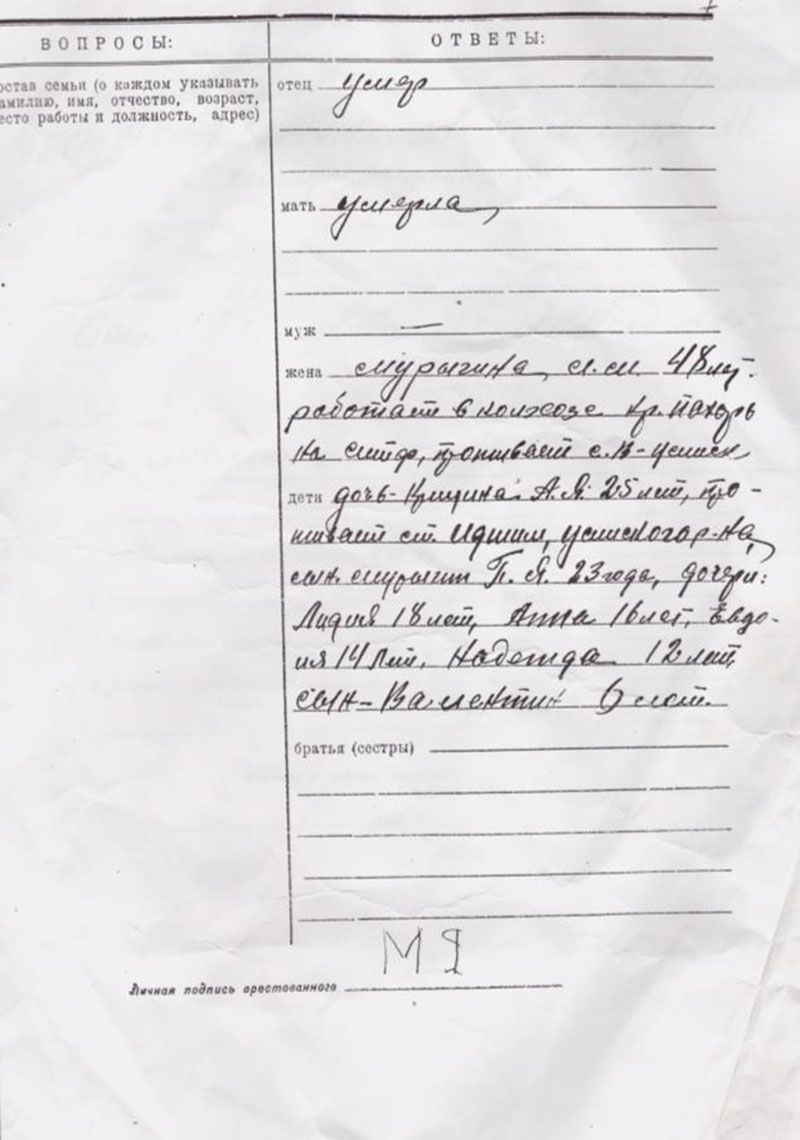 ВОПРОСЫ:
ОТВЕТЫ:
остав семьи (о каждом указывать
амилию, имя, отчество, возраст,
есто работы и должность, адрес)
отец умер
мать умерла,
муж —
жена Мурыгина, 48 лет.
работает в колхозе Кр. Пахарь
на проживает с. В-Усинск
дети дочь- А.Я. 25 лет, про-
живает ст. Идшим, Усинского р-на,
сын Мурыгин П.Я. 23 года, дочери:
Лидия 18 лет, Анна 16 лет, Евдо-
ия 14 лет, Надежда 12 лет,
сын- Валентин 6 лет.
братья (сестры)
МЯ
Личная подпись арестованного